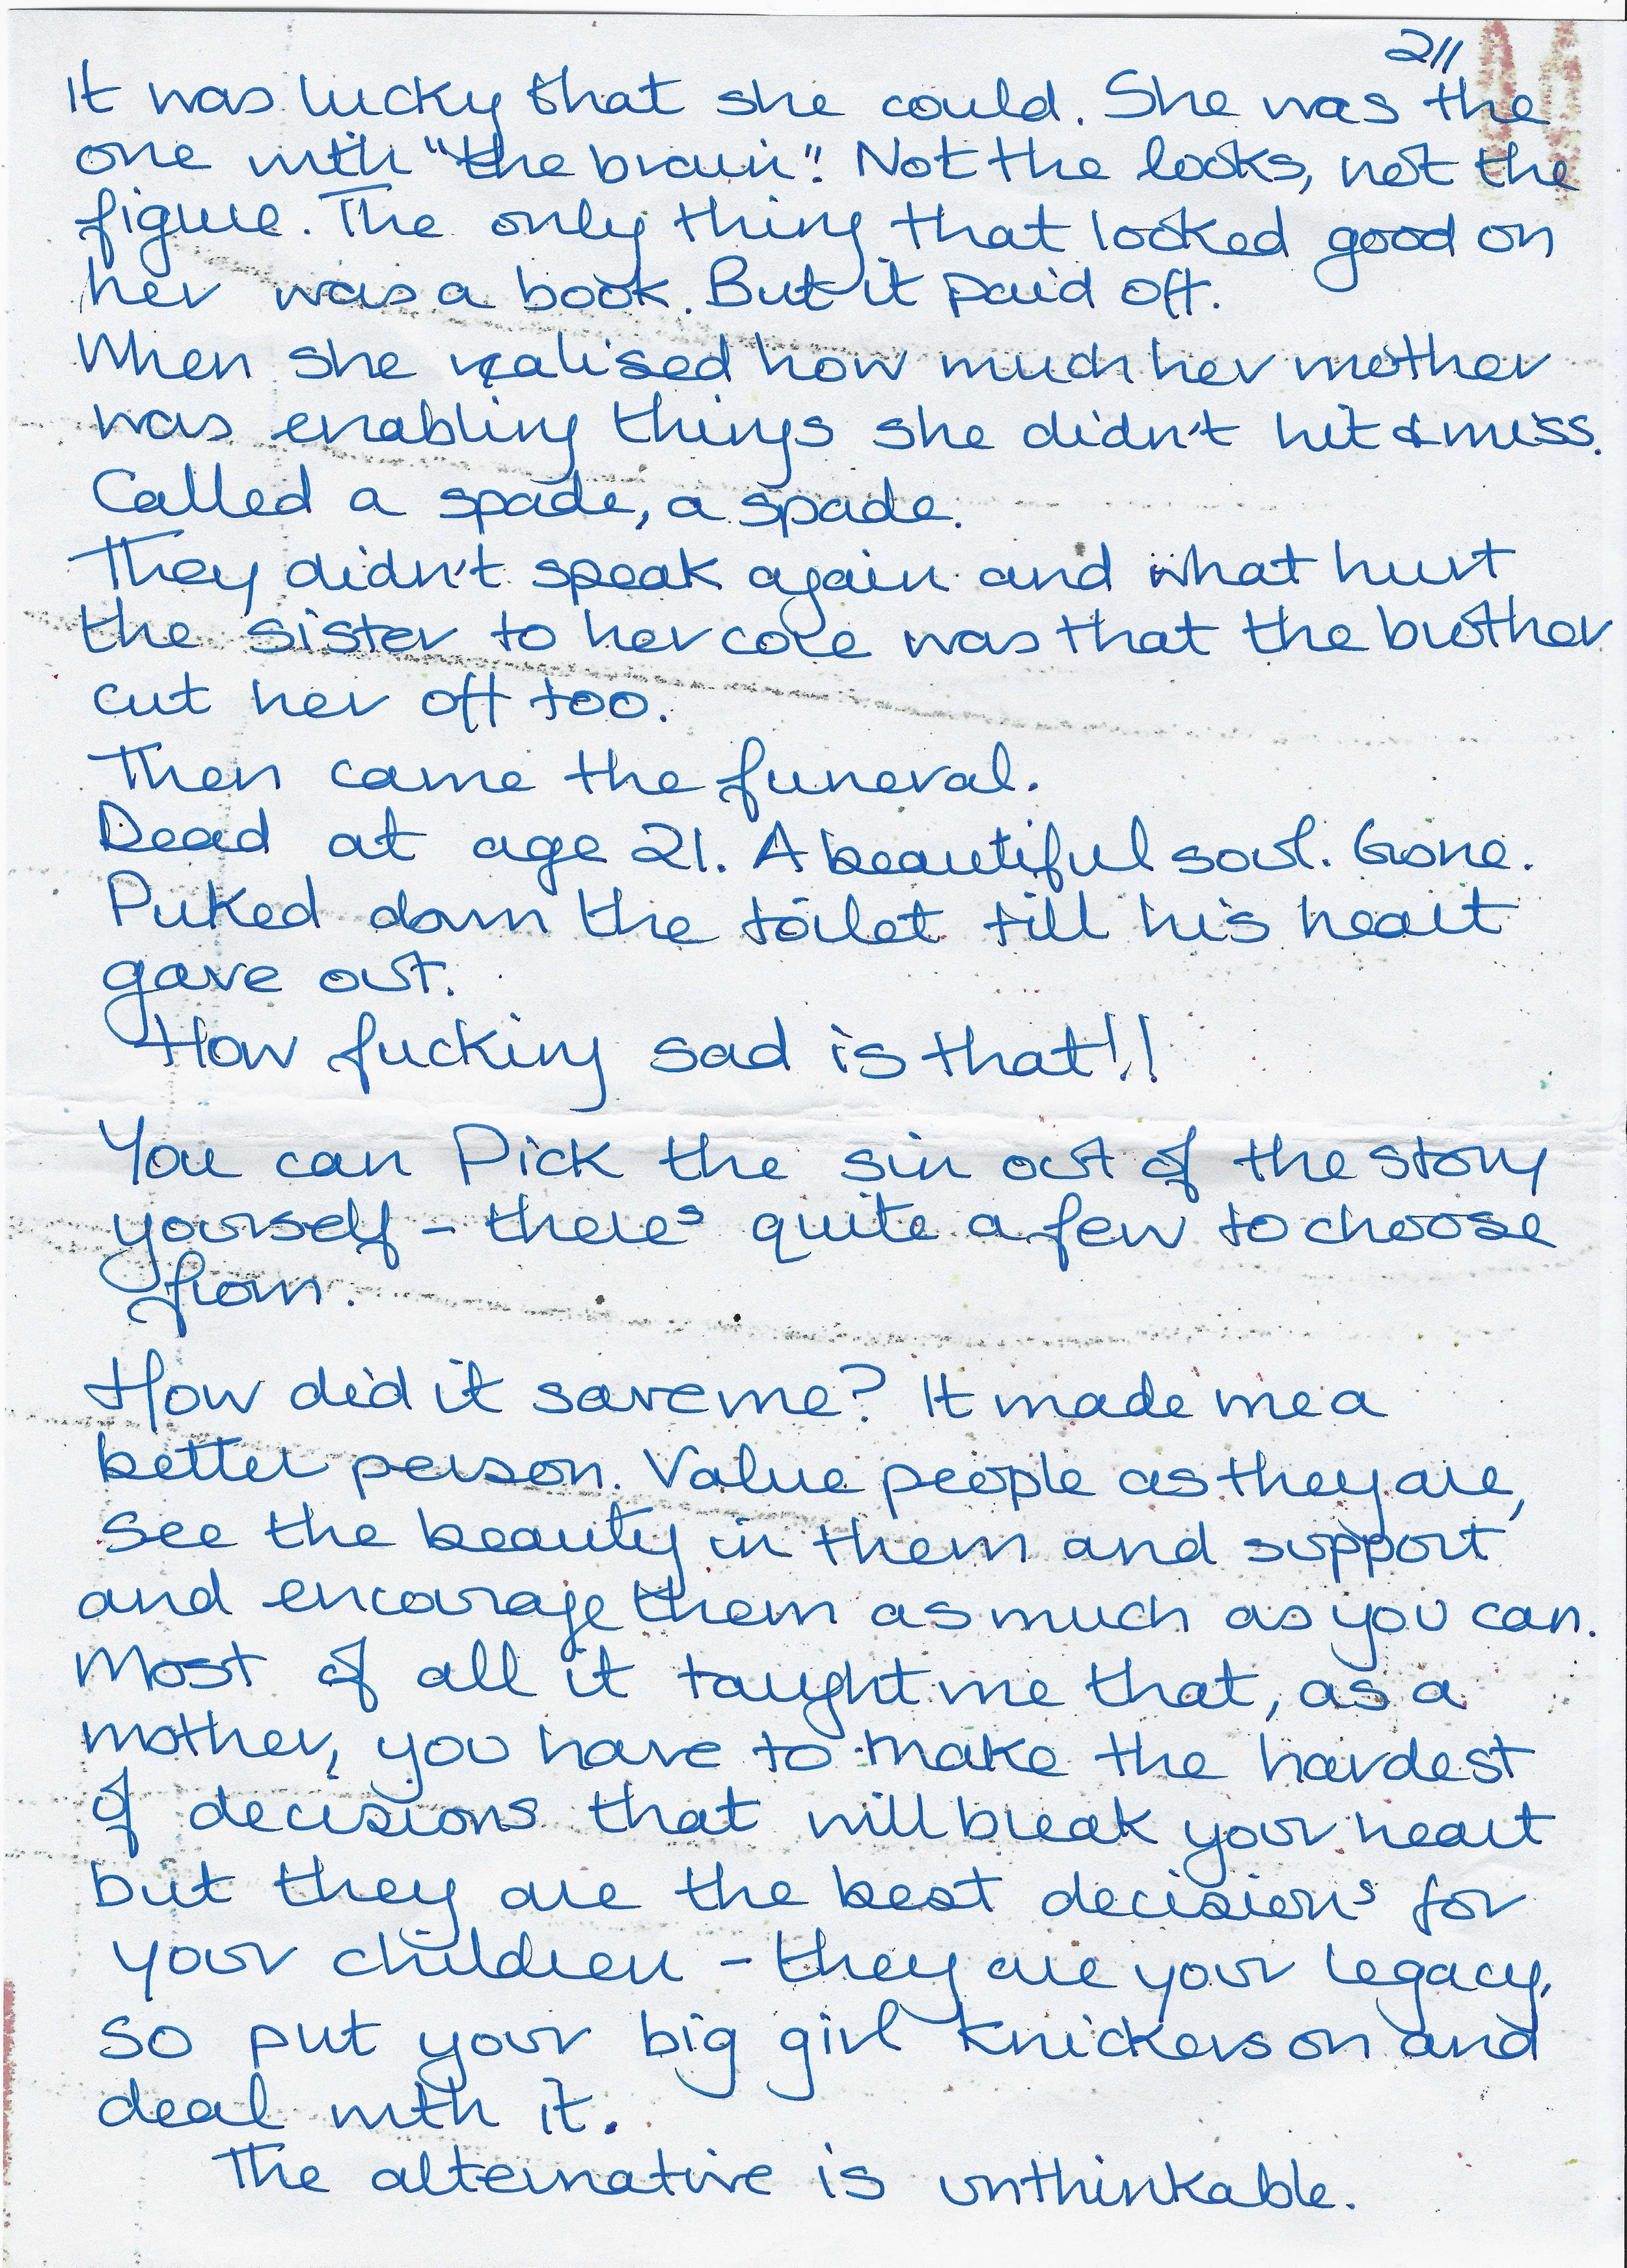 211
It was lucky that she could. She was the
one with "the brain". Not the looks, not the
figure. The only thing that looked good on
her was a book. But it paid off.
When she realised how much her mother
was enabling things she didn't hit & miss.
Called a spade, a spade.
They didn't speak again and what hurt
the sister to her core was that the brother
cut her off too.
Then came the funeral.
Dead at age 21. A beautiful soul. Gone.
Puked down the toilet till his heart
gave out.
How fucking sad is that!!
You can Pick the sin out of the story
yourself - there's quite a few to choose
from.
How did it save me? It made me a
better person. Value people as they are,
see the beauty in them and support
and encourage them as much as you can.
Most of all it taught me that, as a
mother, you have to make the hardest
of decisions that will break your heart
but they are the best decisions for
your children - they are your legacy,
so put your big girl knickers on and
deal with it.
The alternative is unthinkable.